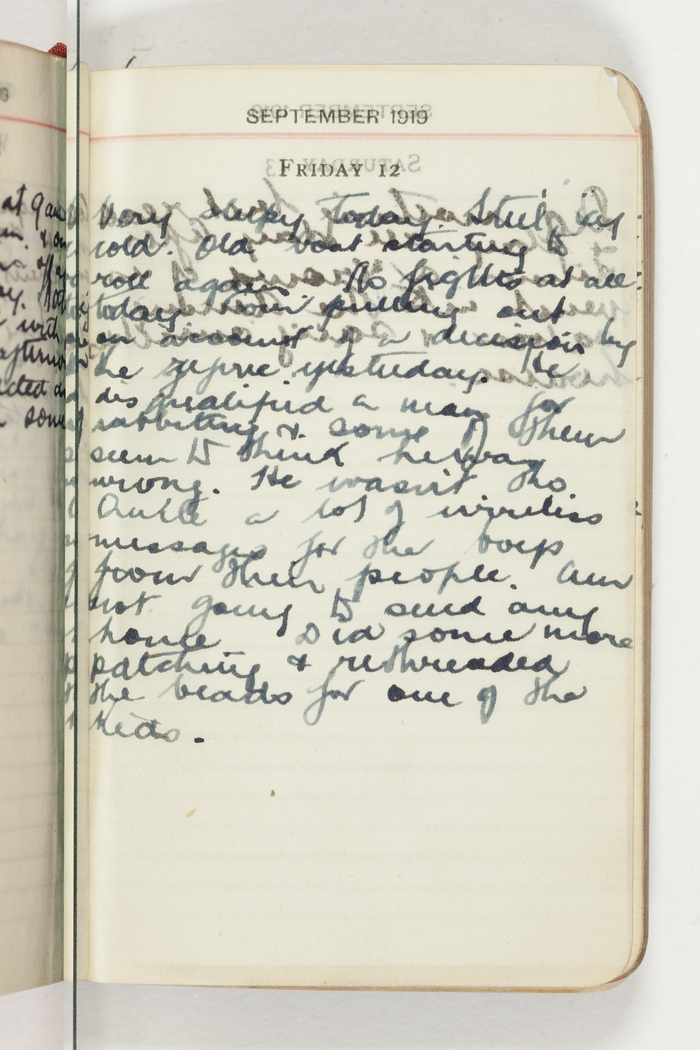 SEPTEMBER 1919
FRIDAY 12
Very sleepy today. Still very
cold. Old boat starting to
roll again. No fights at all
today pulling out
on account of a decision by
the referee yesterday. He
disqualified a man for
rabbiting & some of them
seem to think he was
wrong. He wasn't tho
Quite a lot of wireless
messages for the boys
from their people. Am
not going to send any
home Did some more
patching & rethreaded
the beads for one of the
kids.